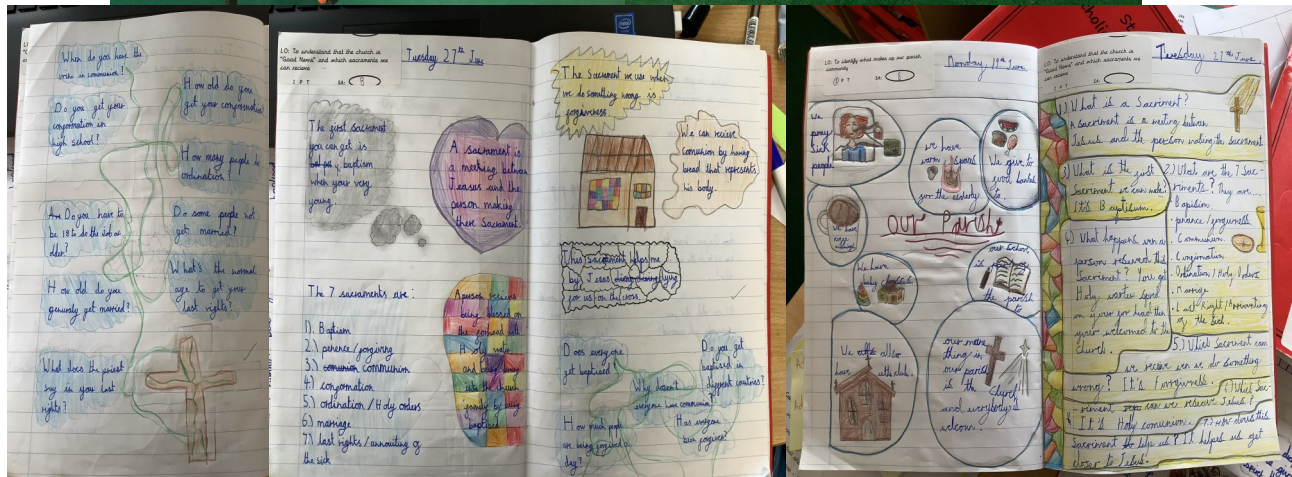 When do you have the
in communion?
How old do you
get your conformation?
Do you get your
conformation in
high school?
How many people
ordination?
Are Do you have to
be 18 to do the job or
older?
Do some people not
get married?
How old do you
generaly get married?
What's the normal
age to get your
last rights?
What does the priest
say in your last
rights?
LO: To understand that the church is
"Good News" and which sacraments we
can recieve
I P T
SA:
Tuesday 27th June
The first sacrament
you can get is
baptism
when your very
young.
A sacrament is
a meeting between
Jeasus and the
person making
there Sacrament.
The 7 sacraments are:
1). Baptism
2.) penance/forgiving
3.) communion
4) conformation
5.) ordination / Holy orders
6) marrage
7.) last rights / annointing of
the sick
A person
being blessed on
the forhead with
Holy water
and being
into the church
family by being
baptised
The Sacrament we use when
we do something wrong is
forgiveness.
We can recieve
Comunion by having
bread that represents
his body.
This Sacrament helps me
by Jesus dying
for us on the cross.
Does everyone
get baptised?
Do you get
baptised in
different countries?
Why doesent
everyone have communion?
How much people
are being forgived a
day?
Has everyone
been forgiven?
LO: To identify what makes up our parish
community
I P T
SA:
Monday 19th June
We
pray
sick
people
we have
warm spaces
for the elderly
We give to
food banks
to.
We have
our Parish
our School
the parish
to
We have
baby
We allso
have youth club.
our main
thing in
our parish
is the
Church
and everybody's
welcom.
LO: To understand that the church is
"Good News" and which sacraments we
can recieve
I P T
SA:
Tuesday 27th June
1.) What is a Sacriment?
A sacriment is a meeting between
Jesus and the person making the sacriment
3) What is the first
Sacriment we can make?
It's Baptisum.
2.) What are the 7 Sac-
riments? They are..
Baptisim
penance/forgivness
Communion.
Conformation
Ordination / Holy Orders
Marrige
Last Right / Annointing
of the Sick.
4.) What happens wen a
person the
Sacriment? You get
Holy warter
on your for head then
your welcomed to the
church.
5.) Which Sacriment can
we recieve wen we do something
wrong? It's Forgivness.
6.) Which Sac-
riment can we recieve Jesus?
It's Holy comunion.
7.) How does this
Sacriment help us? It helps us get
closer to Jesus.